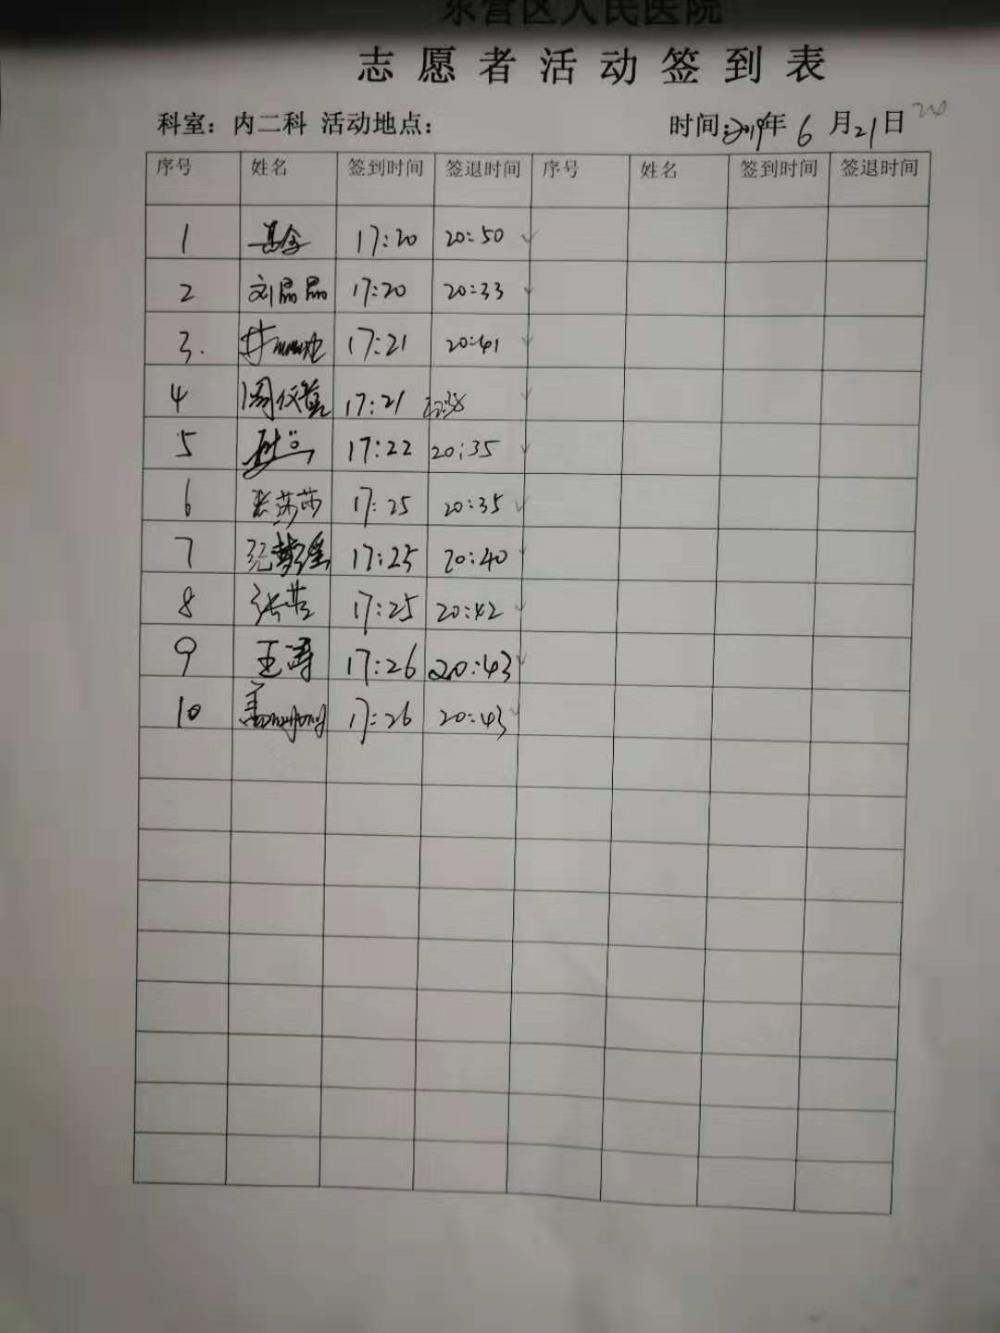 东营区人民医院
志愿者活动签到表
科室：内二科 活动地点： 时间：2019年6月21日
序号 姓名 签到时间 签退时间 序号 姓名 签到时间 签退时间
1 17:20 20:50
2 刘晶晶 17:20 20:33
3. 17:21 20:41
4 17:21
5 17:22 20:35
6 张莎莎 17:25 20:35
7 17:25 20:40
8 17:25 20:42
9 王涛 17:26 20:43
10 17:26 20:43